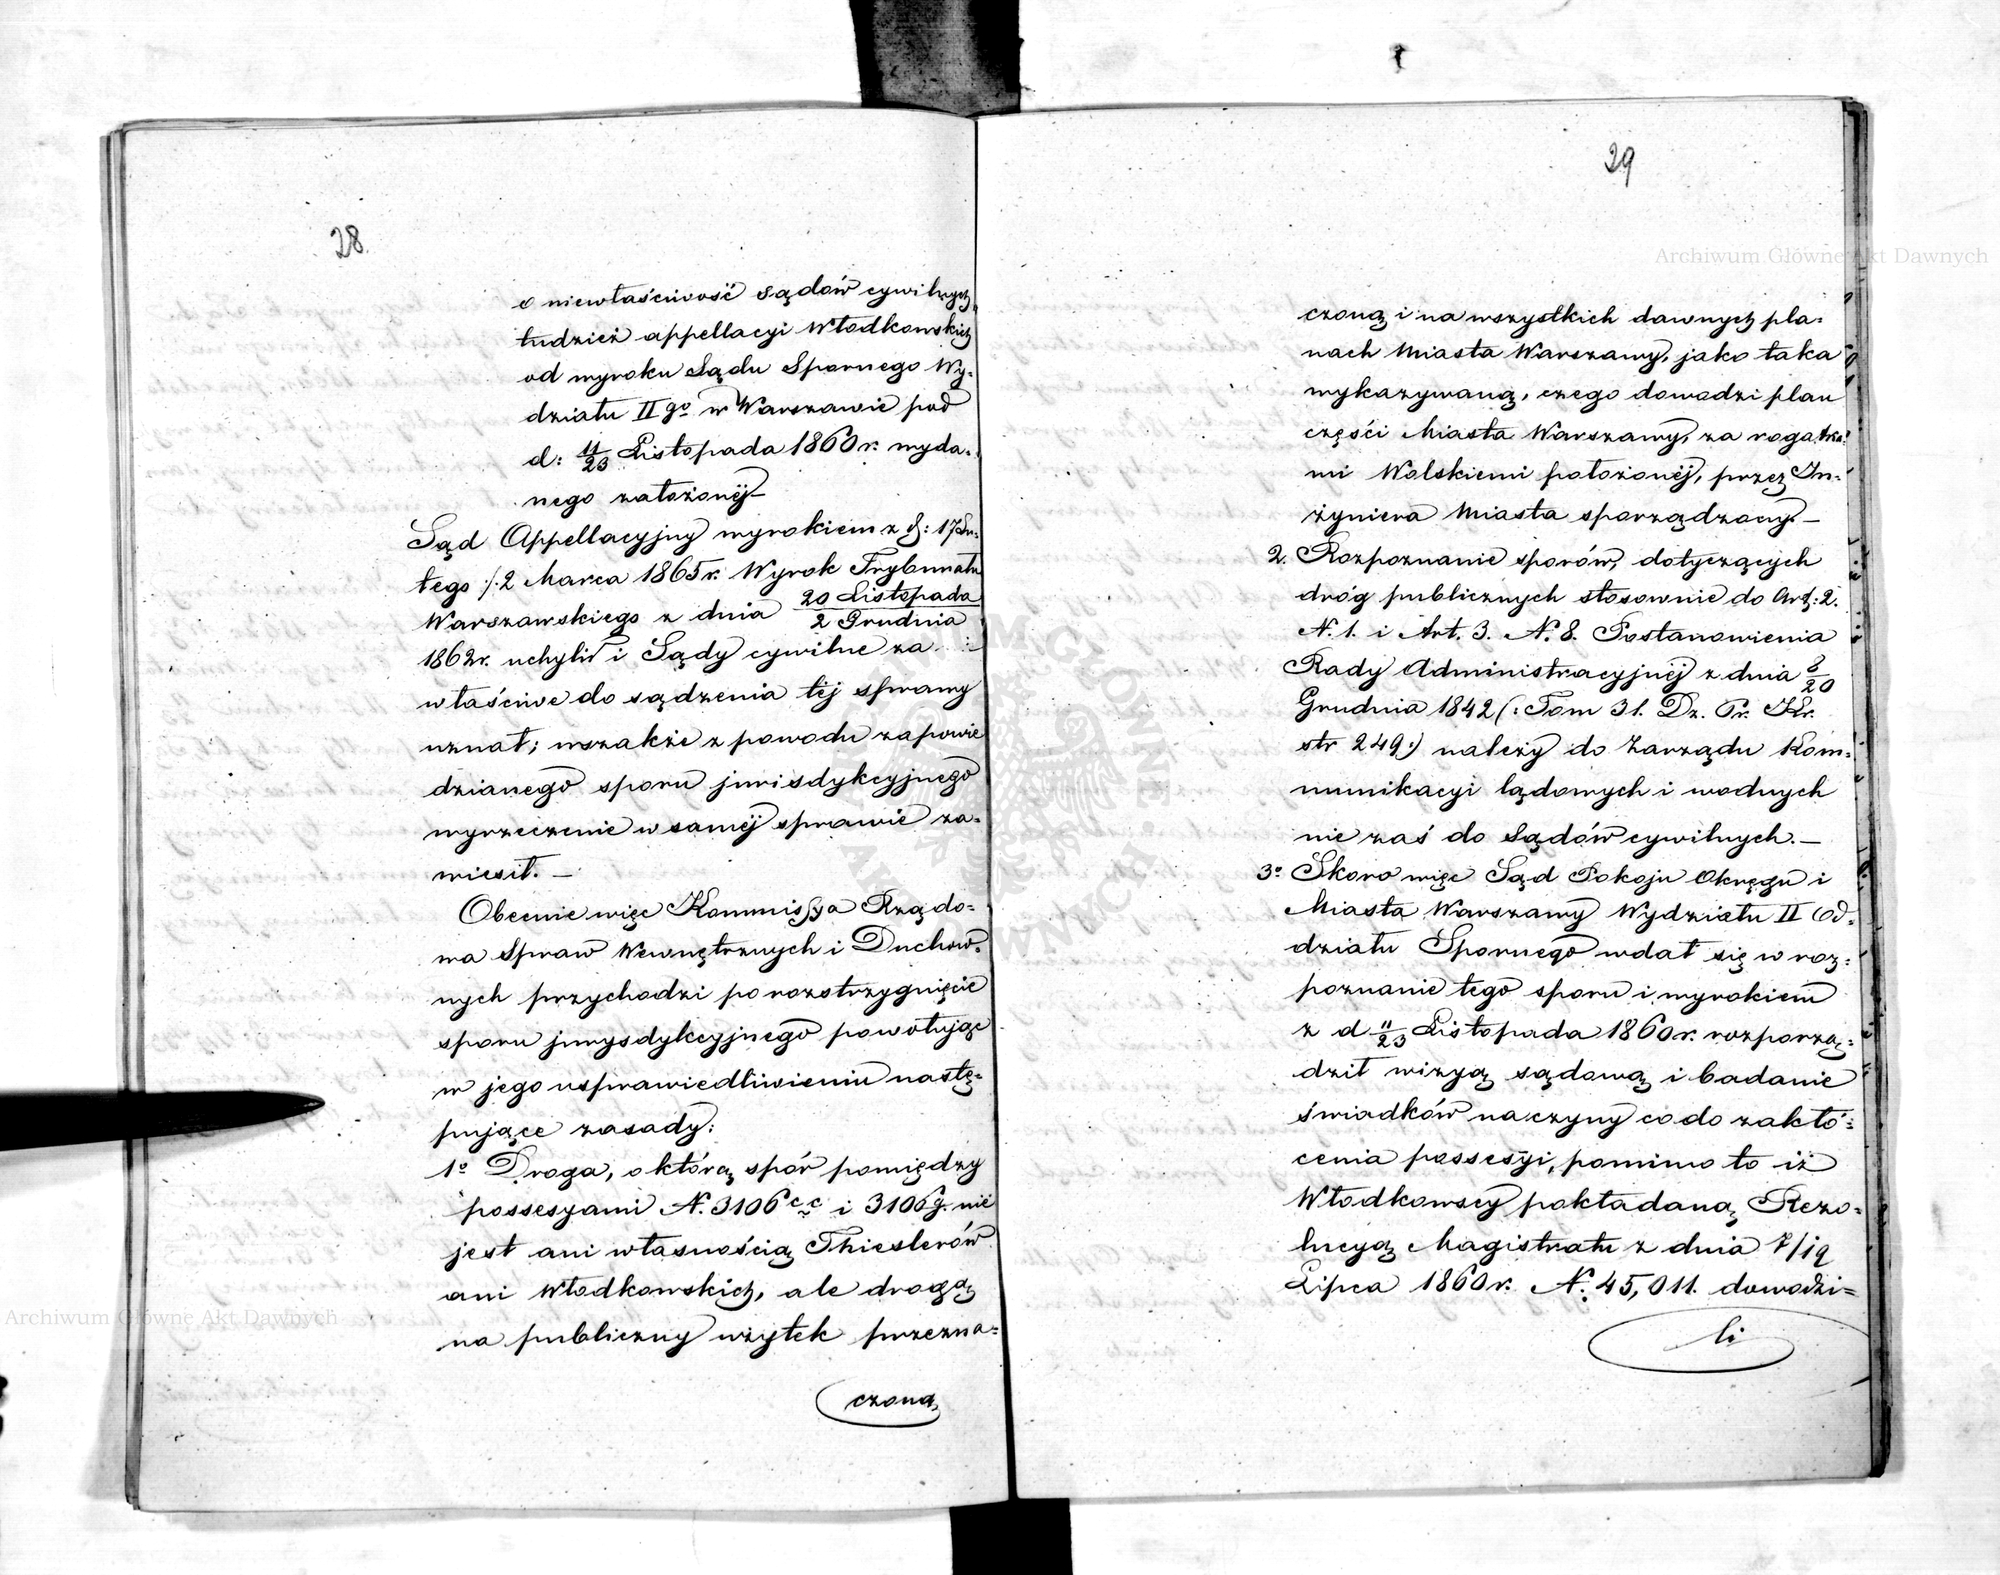 28
o niewłaściwość sądów cywilnych,
tudzież appellacyi Włodkowskich
od wyroku Sądu Spornego Wy-
działu II go w Warszawie pod
d: 11/23 Listopada 1860 r. wyda-
nego założonéj
Sąd Appellacyjny wyrokiem z d: 17 Lu-
tego /. 2 Marca 1865 r. Wyrok Trybunału
Warszawskiego z dnia 20 Listopada / 2 Grudnia
1862 r. uchylił i Sądy cywilne za
właściwe do sądzenia téj sprawy
uznał; wszakże z powodu zapowie
dzianego sporu jurisdykcyjnego
wyrzeczenie w saméj sprawie za-
wiesił. —
Obecnie więc Kommissya Rządo-
wa Spraw Wewnętrznych i Duchow-
nych przychodzi po rozstrzygnięcie
sporu jurysdykcyjnego powołując
w jego usprawiedliwieniu nastę-
pujące zasady:
1º Droga, o którą spór pomiędzy
possesyami N. 3106 cc i 3106 g. nie
jest ani własnością Thieslerów
ani Włodkowskich, ale drogą
na publiczny użytek przezna-
czoną
29
czoną i na wszystkich dawnych pla-
nach Miasta Warszawy, jako taka
wykazywaną, czego dowodzi plan
części Miasta Warszawy, za rogatka-
mi Wolskiemi położonéj, przez In-
żyniera Miasta sporządzony. —
2. Rozpoznanie sporów, dotyczących
dróg publicznych stosownie do Art: 2.
N. 1. i Art. 3. N. 8. Postanowienia
Rady Administracyjnéj z dnia 8/20
Grudnia 1842 (: Tom 31. Dz. Pr. Kr.
str 249:) należy do Zarządu Kom-
munikacyi lądowych i wodnych
nie zaś do Sądów cywilnych. —
3º Skoro więc Sąd Pokoju Okręgu i
Miasta Warszawy Wydziału II Od-
działu Spornego wdał się w roz-
poznanie tego sporu i wyrokiem
z d 11/23 Listopada 1860 r. rozporzą-
dził wizyą sądową i badanie
świadków na czyny co do zakłó-
cenia possesyi, pomimo to iż
Włodkowscy pokładaną Rezo-
lucyą Magistratu z dnia 7/19
Lipca 1860 r. N. 45,011. dowodzi-
li
Archiwum Główne Akt Dawnych
Archiwum Główne Akt Dawnych